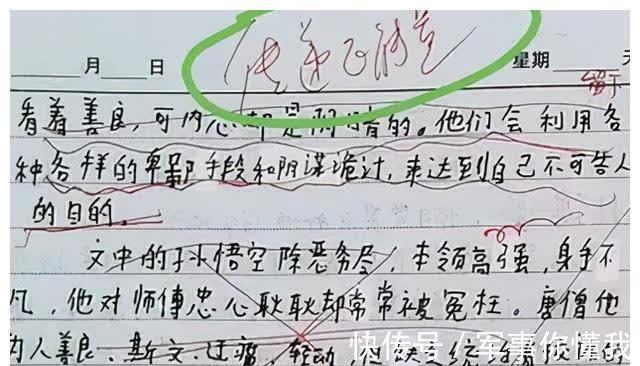 传递正能量
月 日 星期
看着善良，可内心却是阴暗的。他们会利用各
种各样的卑鄙手段和阴谋诡计，来达到自己不可告人
的目的。
文中的孙悟空除恶务尽，本领高强，身手不
凡，他对师傅忠心耿耿却常常被冤枉。唐僧他
为人善良、斯文、迂腐、
快传号 / 军事你懂我